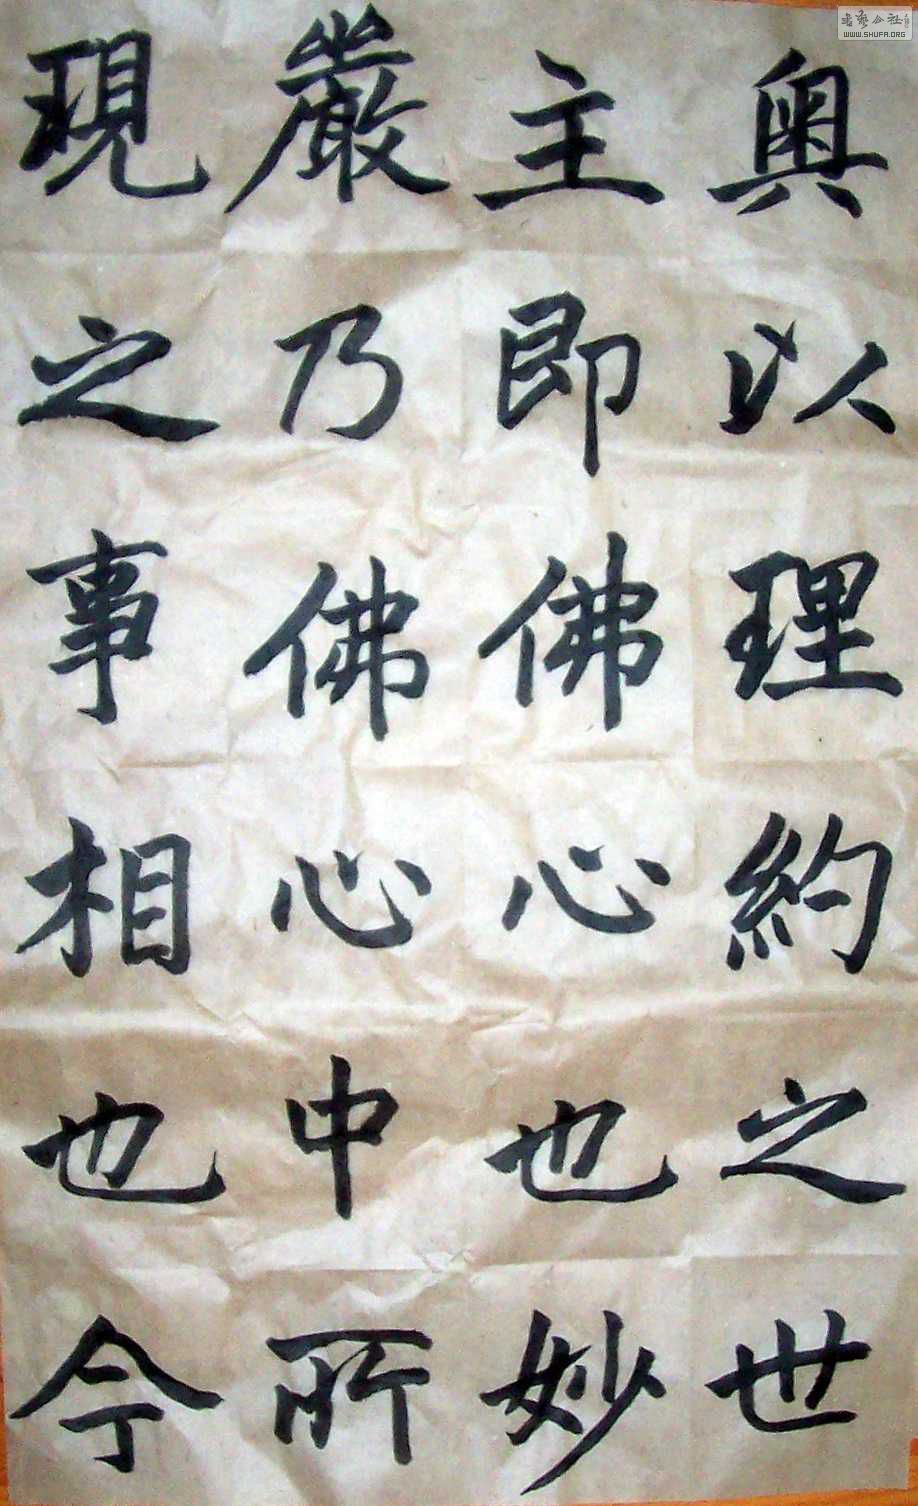 奥以理約之世
主即佛心也妙
嚴乃佛心中所
現之事相也今
WWW.SHUFA.ORG